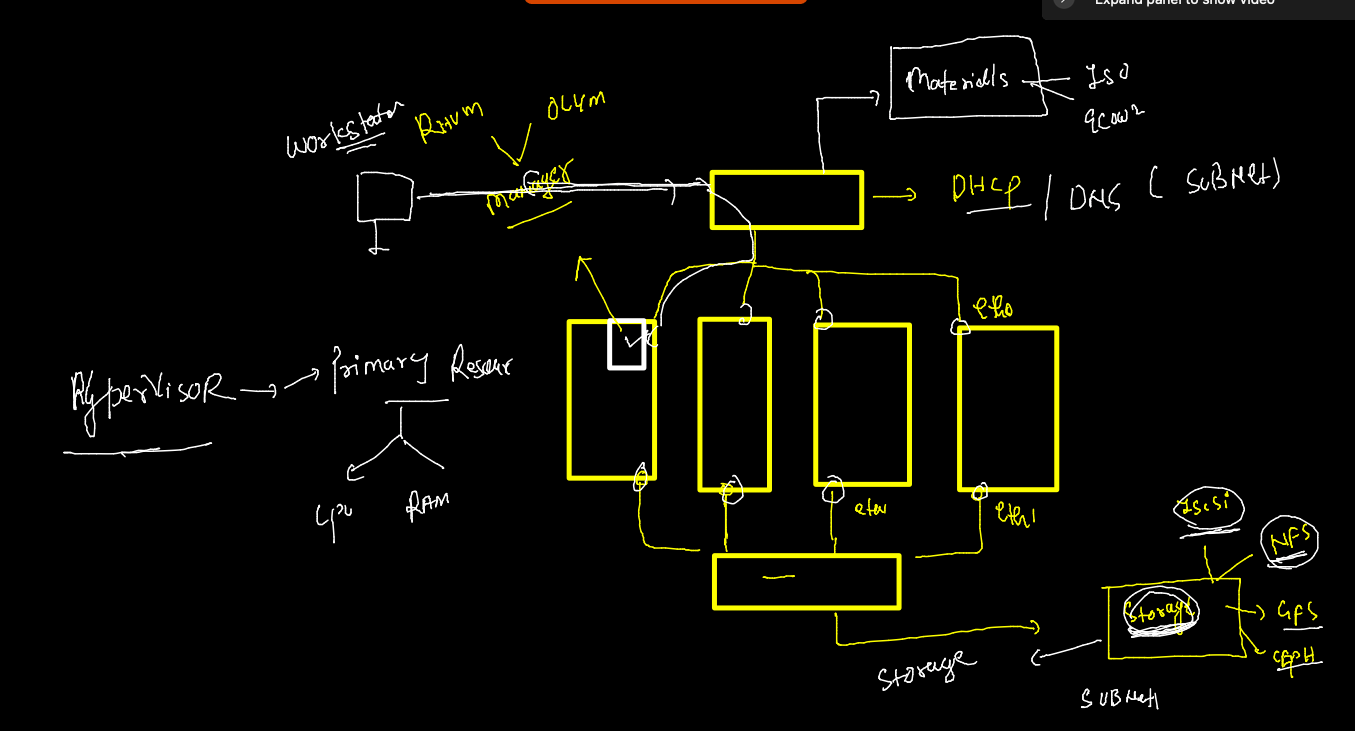 Expand panel to show video
Materials
ISO
qcow2
Workstation
RHVM
OLVM
Manager
DHCP / DNS ( SUBNet)
eth0
HyperVisoR
Primary
CPU
RAM
eth1
ISCSi
NFS
Storage
GFS
CEPH
Storage
SUBNet